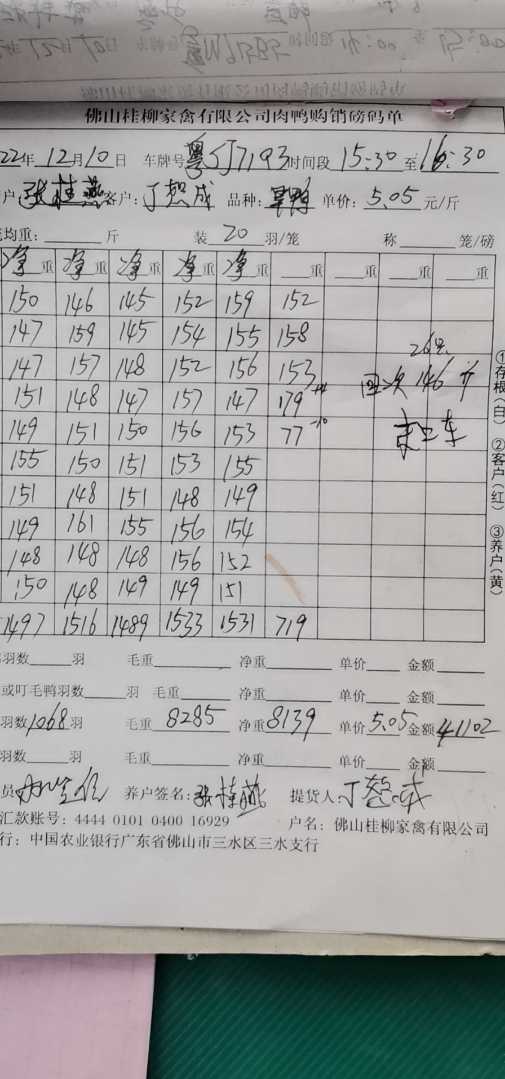 佛山桂柳家禽有限公司肉鸭购销磅码单
22年 12月10日 车牌号 粤 J7193 时间段 15:30 至 16:30
户: 张桂燕 客户: 丁 成 品种: 鸭 单价: 5.05 元/斤
均重: 斤 装 20 羽/笼 称 笼/磅
净重 净重 净重 净重 净重 重 重 重 重
150 146 145 152 159 152
147 159 145 154 155 158
147 157 148 152 156 153
151 148 147 157 147 179
149 151 150 156 153 77 -10
155 150 151 153 155
151 148 151 148 149
149 161 155 156 154
148 148 148 156 152
150 148 149 149 151
1497 1516 1489 1533 1531 719
26只
146斤
①存根(白) ②客户(红) ③养户(黄)
羽数 羽 毛重 净重 单价 金额
或叮毛鸭羽数 羽 毛重 净重 单价 金额
羽数 1068 羽 毛重 8285 净重 8139 单价 5.05 金额 41102
羽数 羽 毛重 净重 单价 金额
员 养户签名: 张桂燕 提货人: 丁 成
汇款账号: 4444 0101 0400 16929 户名: 佛山桂柳家禽有限公司
行: 中国农业银行广东省佛山市三水区三水支行